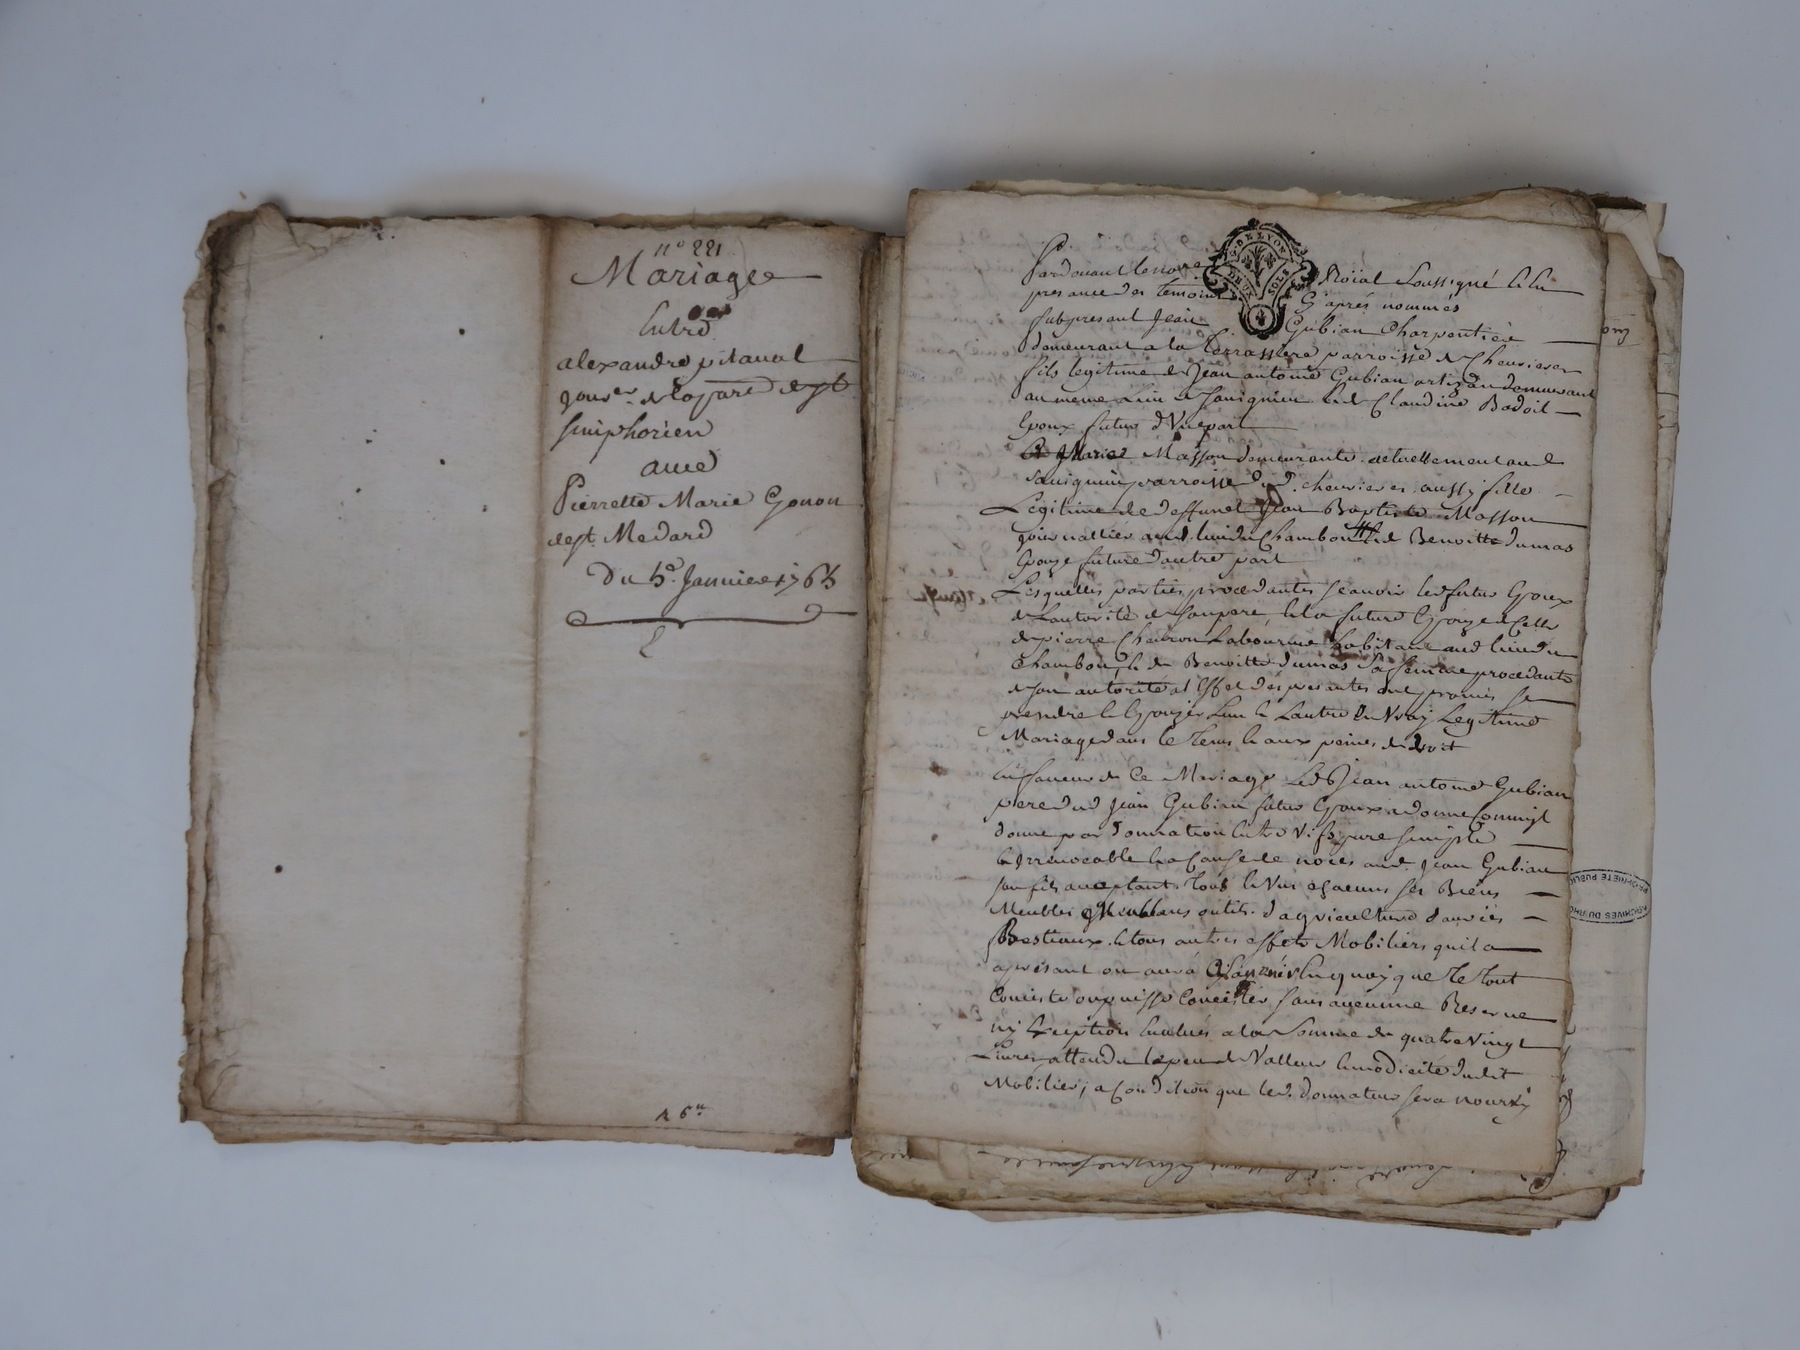 n° 221
Mariage
Entre
alexandre pitaval
jour.er de la par.e de st
simphorien
avec
Pierrette Marie Gonon
de st. Medard
Du 5.e Janvier 1763
R 6.tt
G. DE LYON
DEUX SOLS
Pardevant le no.re Roïial soussigné & en
presance des temoins Cy après nommés
fut present Jean Gubian Charpentier
demeurant a la Terrassiere parroisse de Chevrieres
fils legitime de Jean antoine Gubian artizan demeurant
au meme lieu de Savignieu & de Claudine Badoil
Epoux futur d'Une part
Et Marie Masson demeurante actuellement aud.
Savignieu parroisse dud. chevrieres aussy fille
Legitime de deffunct Jean Baptiste Masson
journallier aud. lieu du Chambon & de Benoitte dumas
Epouze future d'autre part
Lesquelles parties procedantes scavoir led. futur Epoux
de L'autorité de son pere & la future Epouze de celle
de pierre Chevron Laboureur habitant aud. lieu du
Chambon & de Benoitte dumas sa femme procedante
de son autorité a l'Effet des presantes ont promis se
prendre & Epouzer L'un & L'autre En Vray Legitime
Mariage dans le tems & aux peines de droit
En faveur de Ce Mariage Led. Jean antoine Gubian
pere dud. Jean Gubian futur Epoux a donné comme il
donne par donnation Entre Vifs pure simple
& Irrevocable & a Cause de noces aud. Jean Gubian
son fils acceptant Tous & Uns chacuns ses Biens
Meubles Meublans outils d'agriculture danrées
Bestiaux & tous autres effets Mobiliers qu'il a
apresant ou aura En quoy que le tout
Conciste ou puisse Concister sans aucunne Reserve
ny Exception Evalués a la Somme de quatre Vingt
Livres attendu le peu de Valleur & modicité dudit
Mobilier; a Condition que led. donnateur sera nourry
ARCHIVES DU RHO
PROPRIETE PUBLI